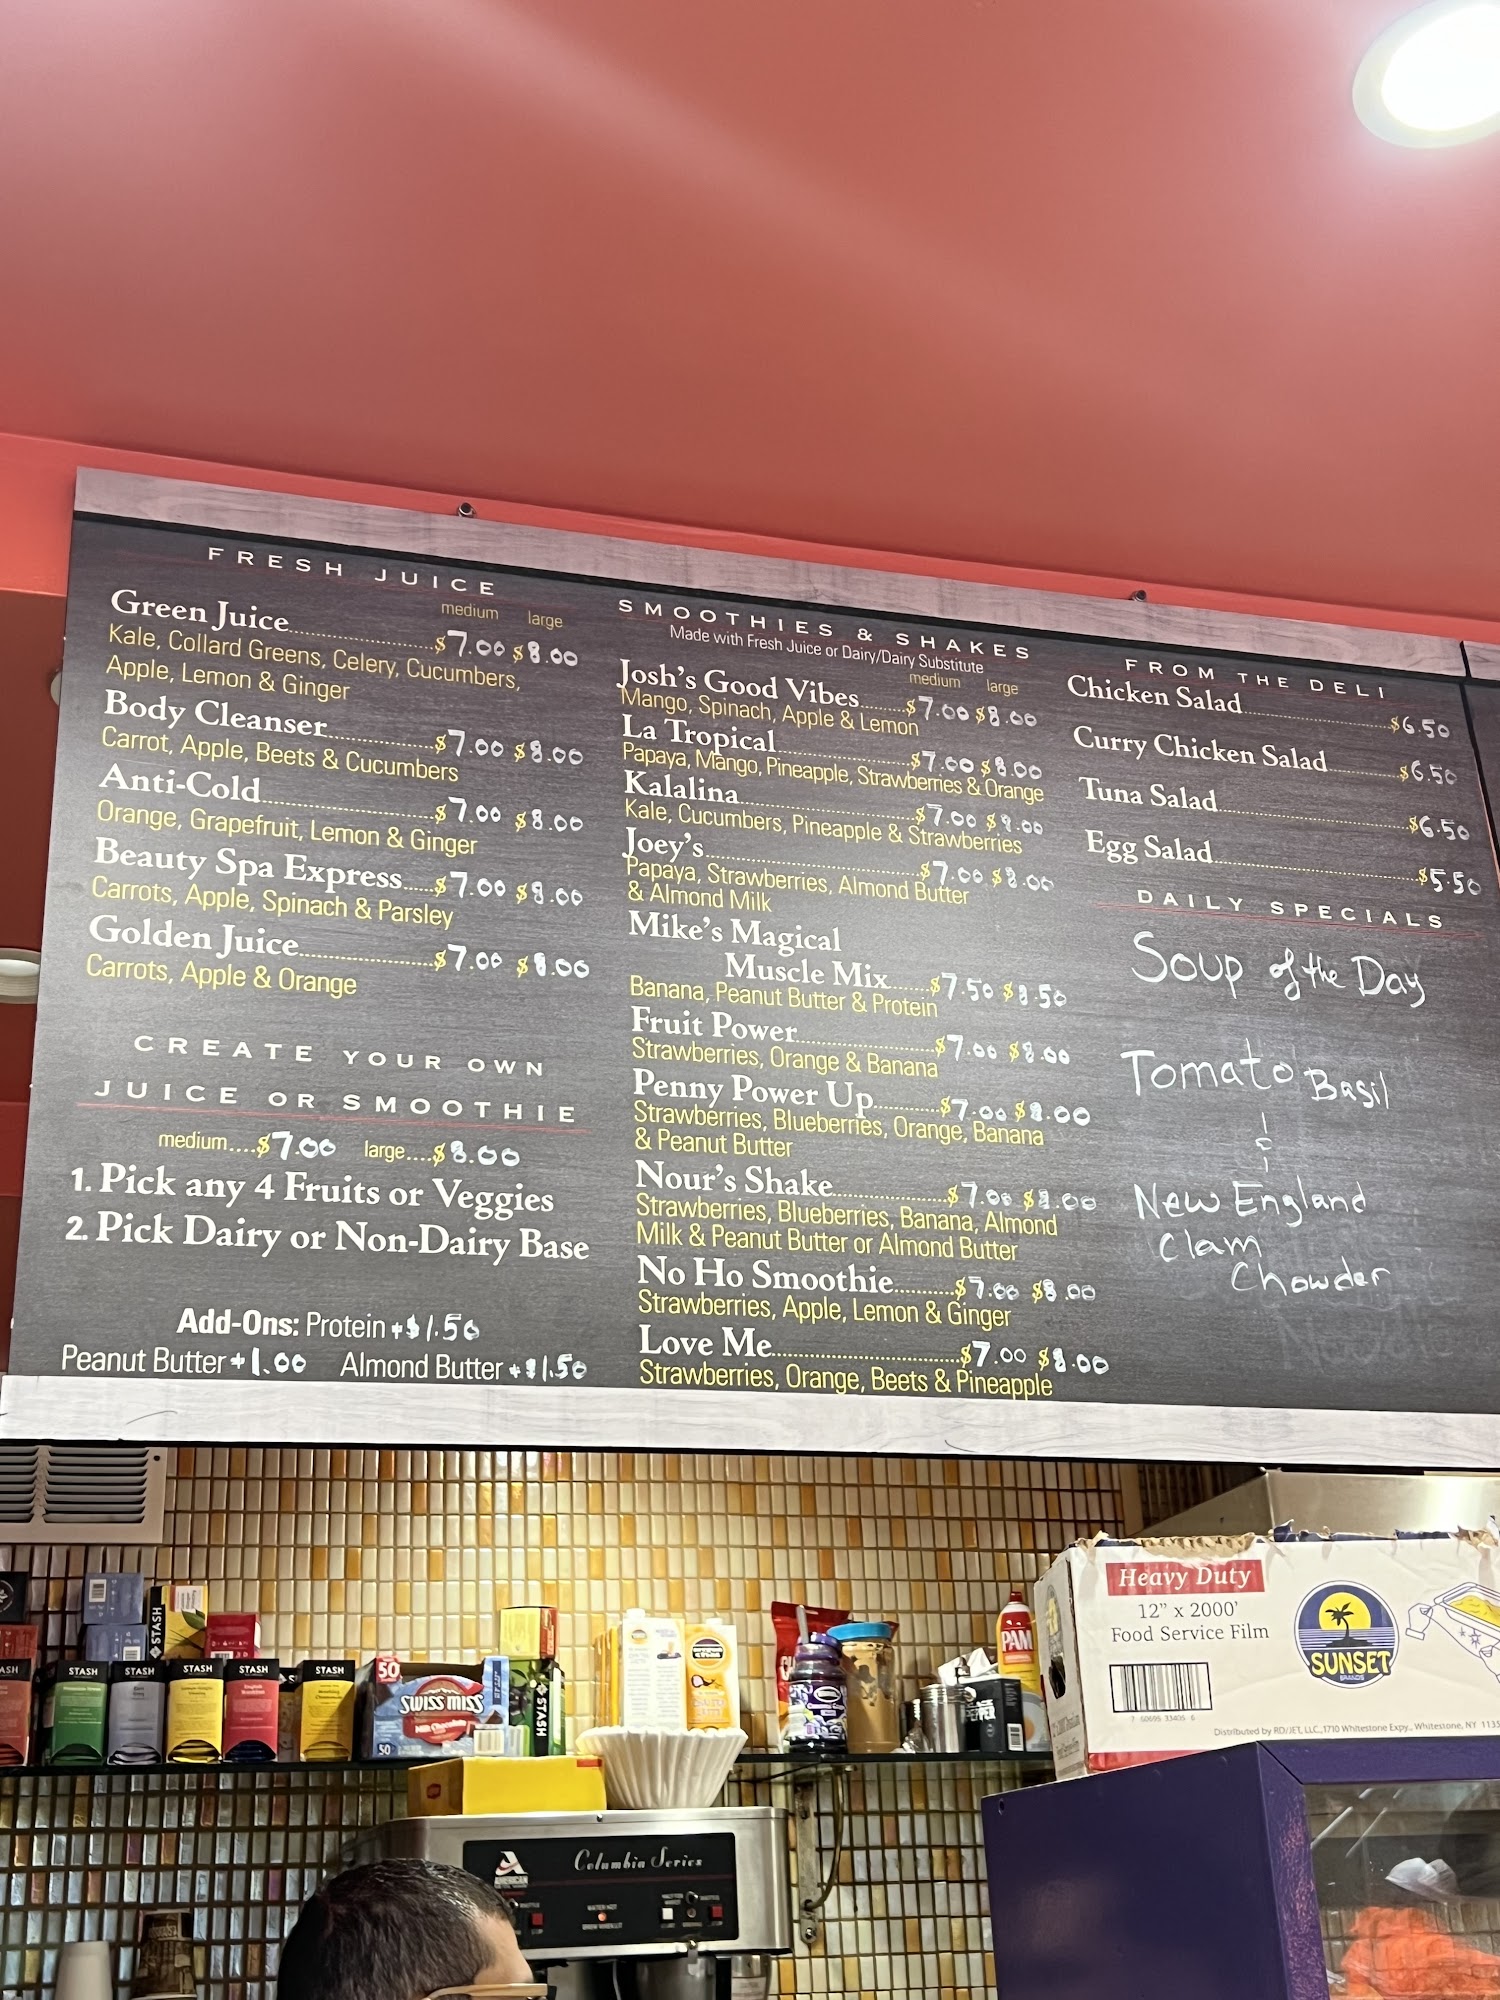 FRESH JUICE
medium large
Green Juice $7.00 $8.00
Kale, Collard Greens, Celery, Cucumbers,
Apple, Lemon & Ginger
Body Cleanser $7.00 $8.00
Carrot, Apple, Beets & Cucumbers
Anti-Cold $7.00 $8.00
Orange, Grapefruit, Lemon & Ginger
Beauty Spa Express $7.00 $8.00
Carrots, Apple, Spinach & Parsley
Golden Juice $7.00 $8.00
Carrots, Apple & Orange
CREATE YOUR OWN
JUICE OR SMOOTHIE
medium....$7.00 large....$8.00
1. Pick any 4 Fruits or Veggies
2. Pick Dairy or Non-Dairy Base
Add-Ons: Protein +$1.50
Peanut Butter +1.00 Almond Butter +$1.50
SMOOTHIES & SHAKES
Made with Fresh Juice or Dairy/Dairy Substitute
medium large
Josh's Good Vibes $7.00 $8.00
Mango, Spinach, Apple & Lemon
La Tropical $7.00 $8.00
Papaya, Mango, Pineapple, Strawberries & Orange
Kalalina $7.00 $8.00
Kale, Cucumbers, Pineapple & Strawberries
Joey's $7.00 $8.00
Papaya, Strawberries, Almond Butter
& Almond Milk
Mike's Magical
Muscle Mix $7.50 $8.50
Banana, Peanut Butter & Protein
Fruit Power $7.00 $8.00
Strawberries, Orange & Banana
Penny Power Up $7.00 $8.00
Strawberries, Blueberries, Orange, Banana
& Peanut Butter
Nour's Shake $7.00 $8.00
Strawberries, Blueberries, Banana, Almond
Milk & Peanut Butter or Almond Butter
No Ho Smoothie $7.00 $8.00
Strawberries, Apple, Lemon & Ginger
Love Me $7.00 $8.00
Strawberries, Orange, Beets & Pineapple
FROM THE DELI
Chicken Salad $6.50
Curry Chicken Salad $6.50
Tuna Salad $6.50
Egg Salad $5.50
DAILY SPECIALS
Soup of the Day
Tomato Basil
&
New England
Clam
Chowder
Heavy Duty
12" x 2000'
Food Service Film
SUNSET
BRANDS
7 60695 33405 6
Distributed by RD/JET, LLC., 1710 Whitestone Expy., Whitestone, NY 1135
PAM
STASH
STASH
STASH
STASH
STASH
STASH
STASH
50
SWISS MISS
Milk Chocolate
50
AMERICAN
Columbia Series